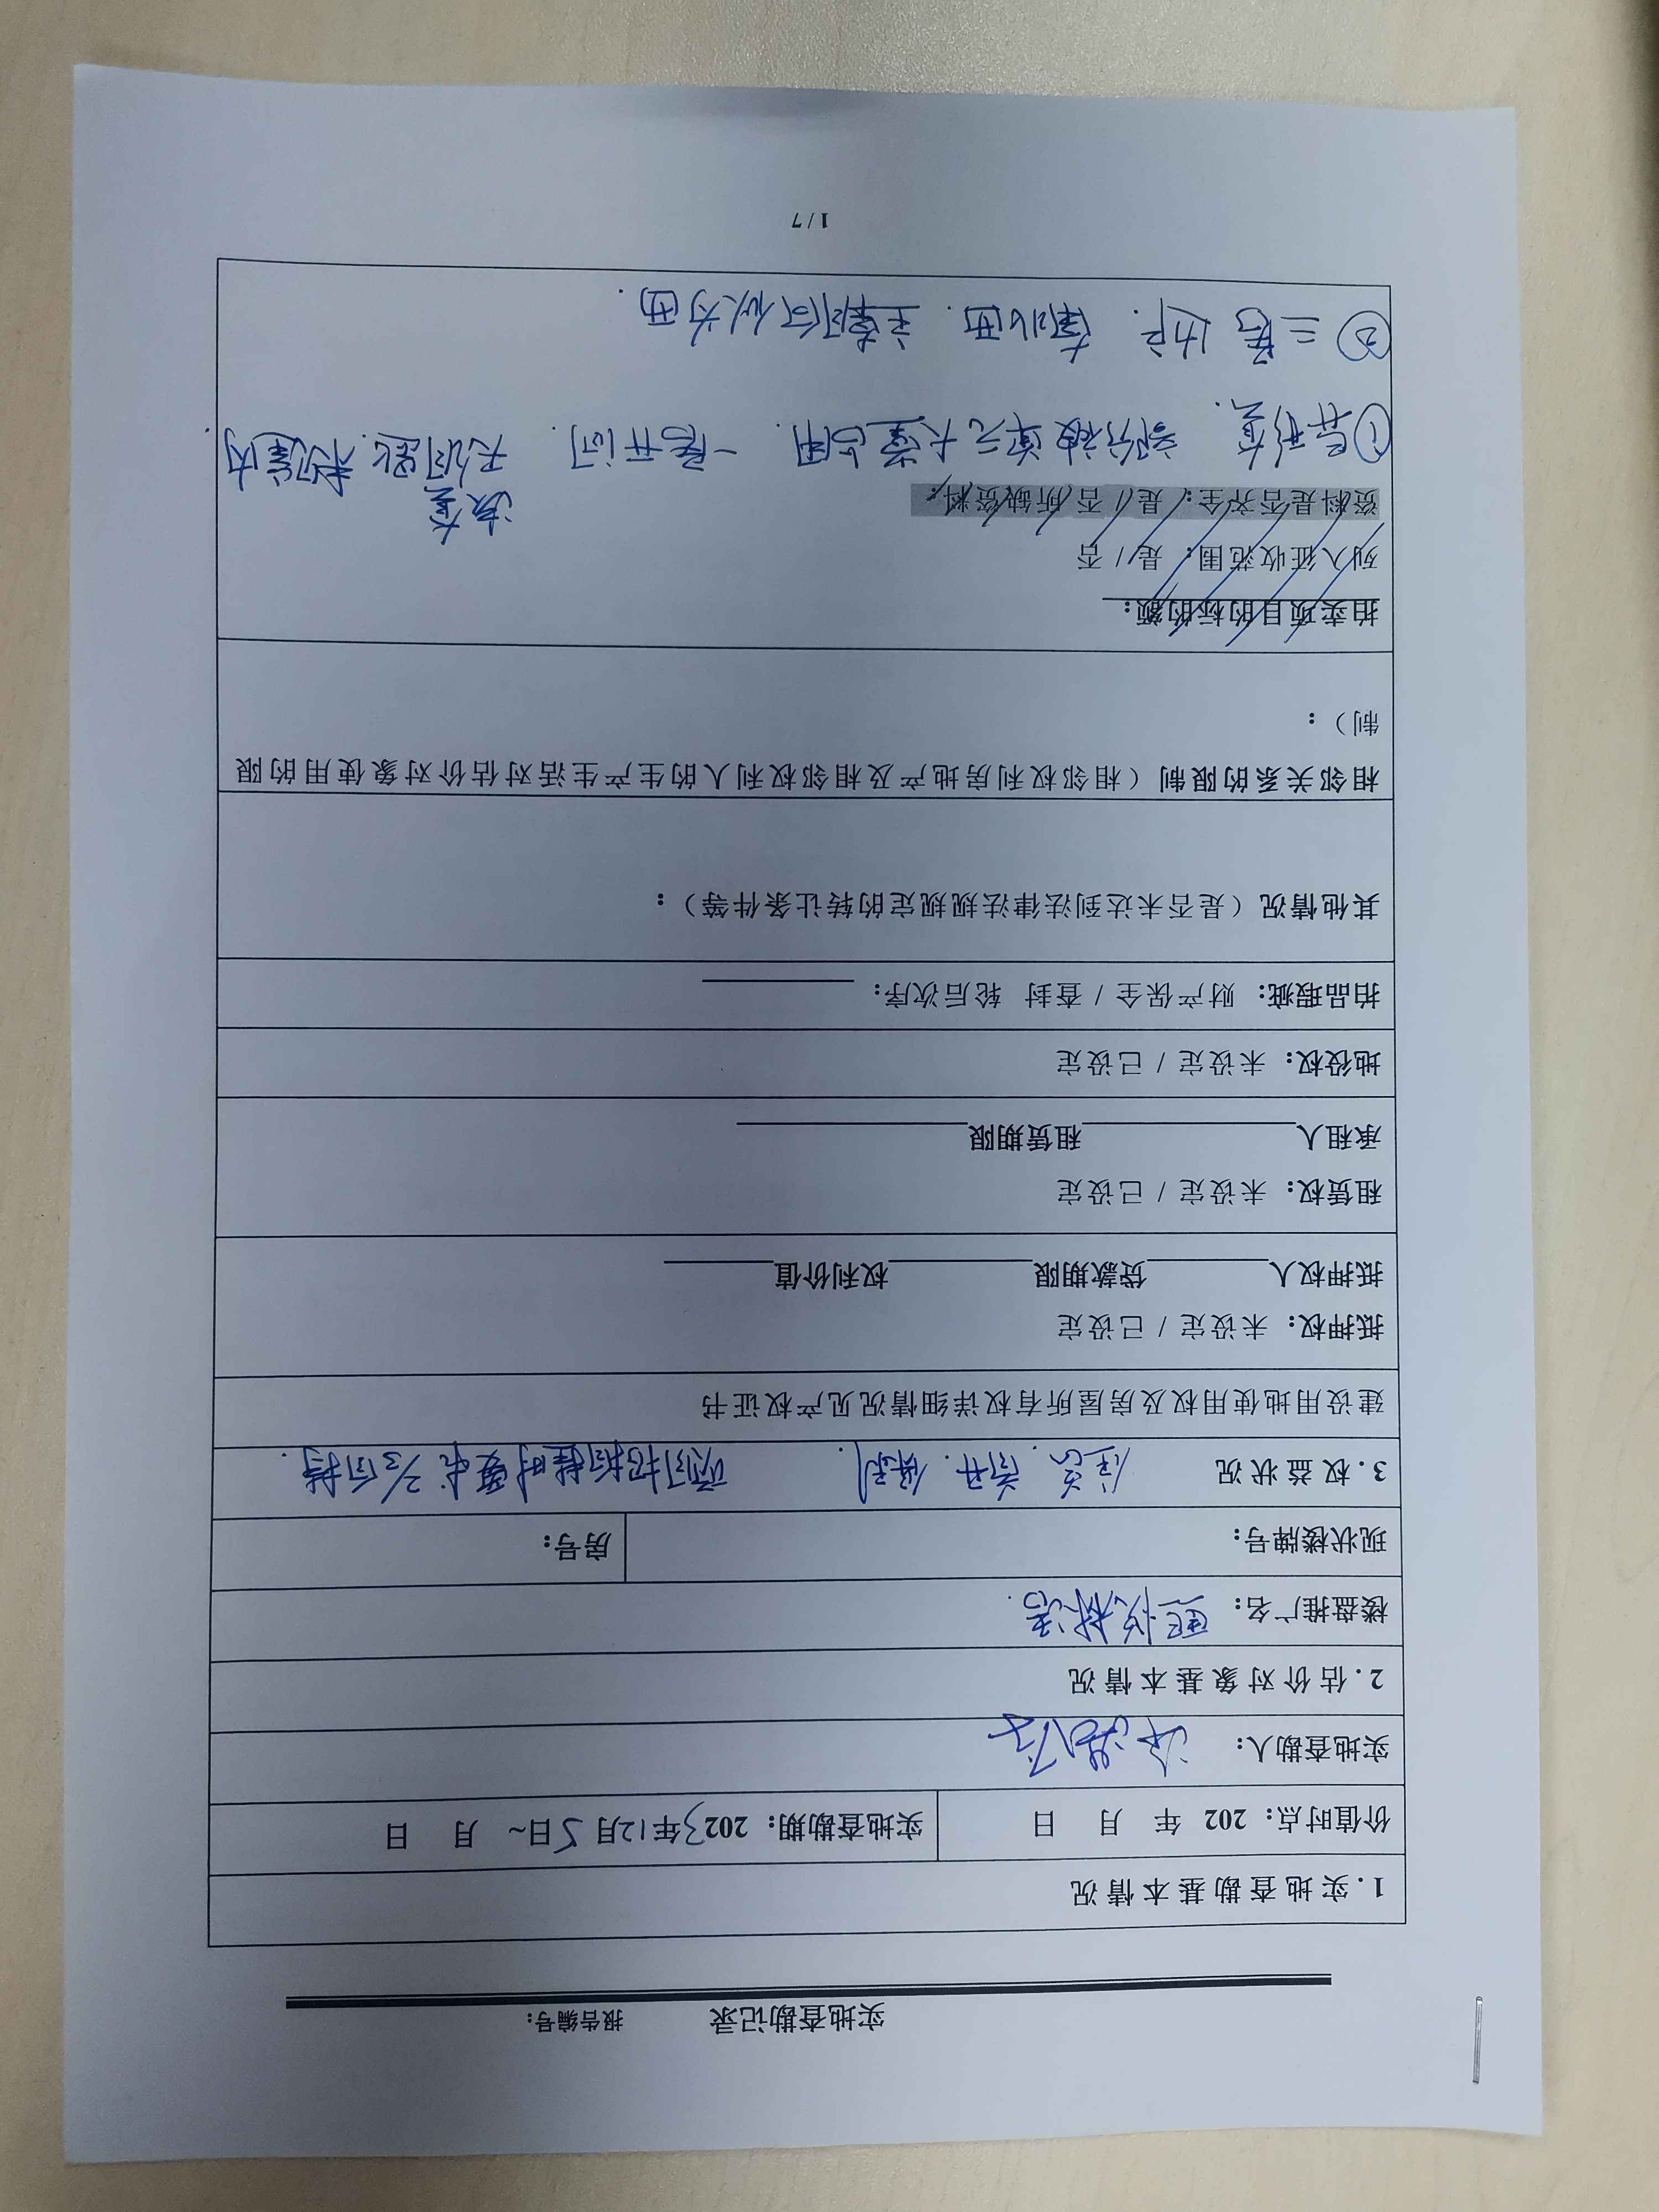 实地查勘记录 报告编号:
1.实地查勘基本情况
价值时点: 202 年 月 日 实地查勘期: 2023年12月5日~ 月 日
实地查勘人:
2.估价对象基本情况
楼盘推广名: 熙悦林语.
现状楼牌号: 房号:
3.权益状况 住宅. 高开. 保利. 项目招拍挂时要求2/3自持.
建设用地使用权及房屋所有权详细情况见产权证书
抵押权: 未设定 / 已设定
抵押权人 贷款期限 权利价值
租赁权: 未设定 / 已设定
承租人 租赁期限
地役权: 未设定 / 已设定
拍品瑕疵: 财产保全 / 查封 轮后次序:
其他情况(是否未达到法律法规规定的转让条件等):
相邻关系的限制(相邻权利房地产及相邻权利人的生产生活对估价对象使用的限
制):
拍卖项目的标的额:
列入征收范围: 是// 否
资料是否齐全: 是// 否 所缺资料:
① 异形套. 部分被单元大堂占用. 一层开门. 无钥匙. 未入室内.
② 二居 边户. 有南北西. 主要房间似为西.